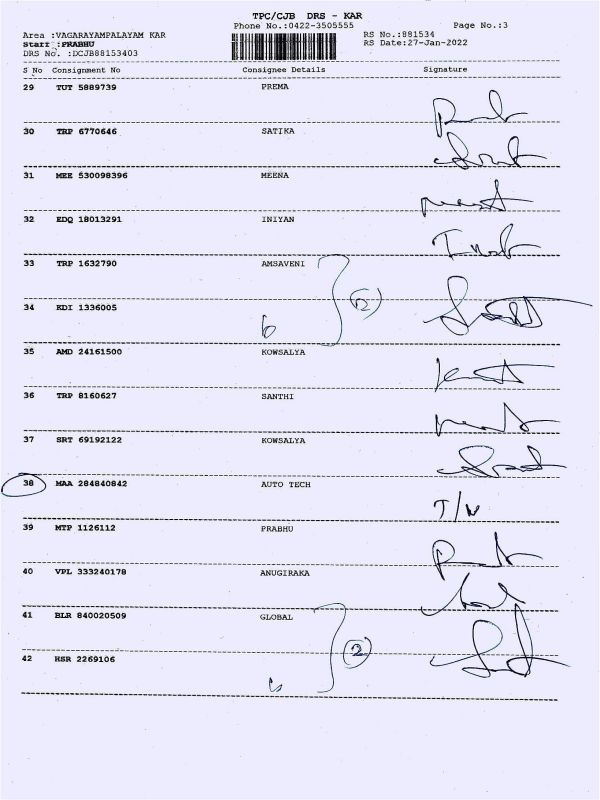 TPC/CJB DRS - KAR
Phone No.:0422-3505555 Page No.:3
Area :VAGARAYAMPALAYAM KAR RS No.:881534
Staff :PRABHU RS Date:27-Jan-2022
DRS No. :DCJB88153403
S No Consignment No Consignee Details Signature
29 TUT 5889739 PREMA
30 TRP 6770646 SATIKA
31 MEE 530098396 MEENA
32 EDQ 18013291 INIYAN
33 TRP 1632790 AMSAVENI
34 KDI 1336005
35 AMD 24161500 KOWSALYA
36 TRP 8160627 SANTHI
37 SRT 69192122 KOWSALYA
38 MAA 284840842 AUTO TECH
39 MTP 1126112 PRABHU
40 VPL 333240178 ANUGIRAKA
41 BLR 840020509 GLOBAL
2
42 HSR 2269106